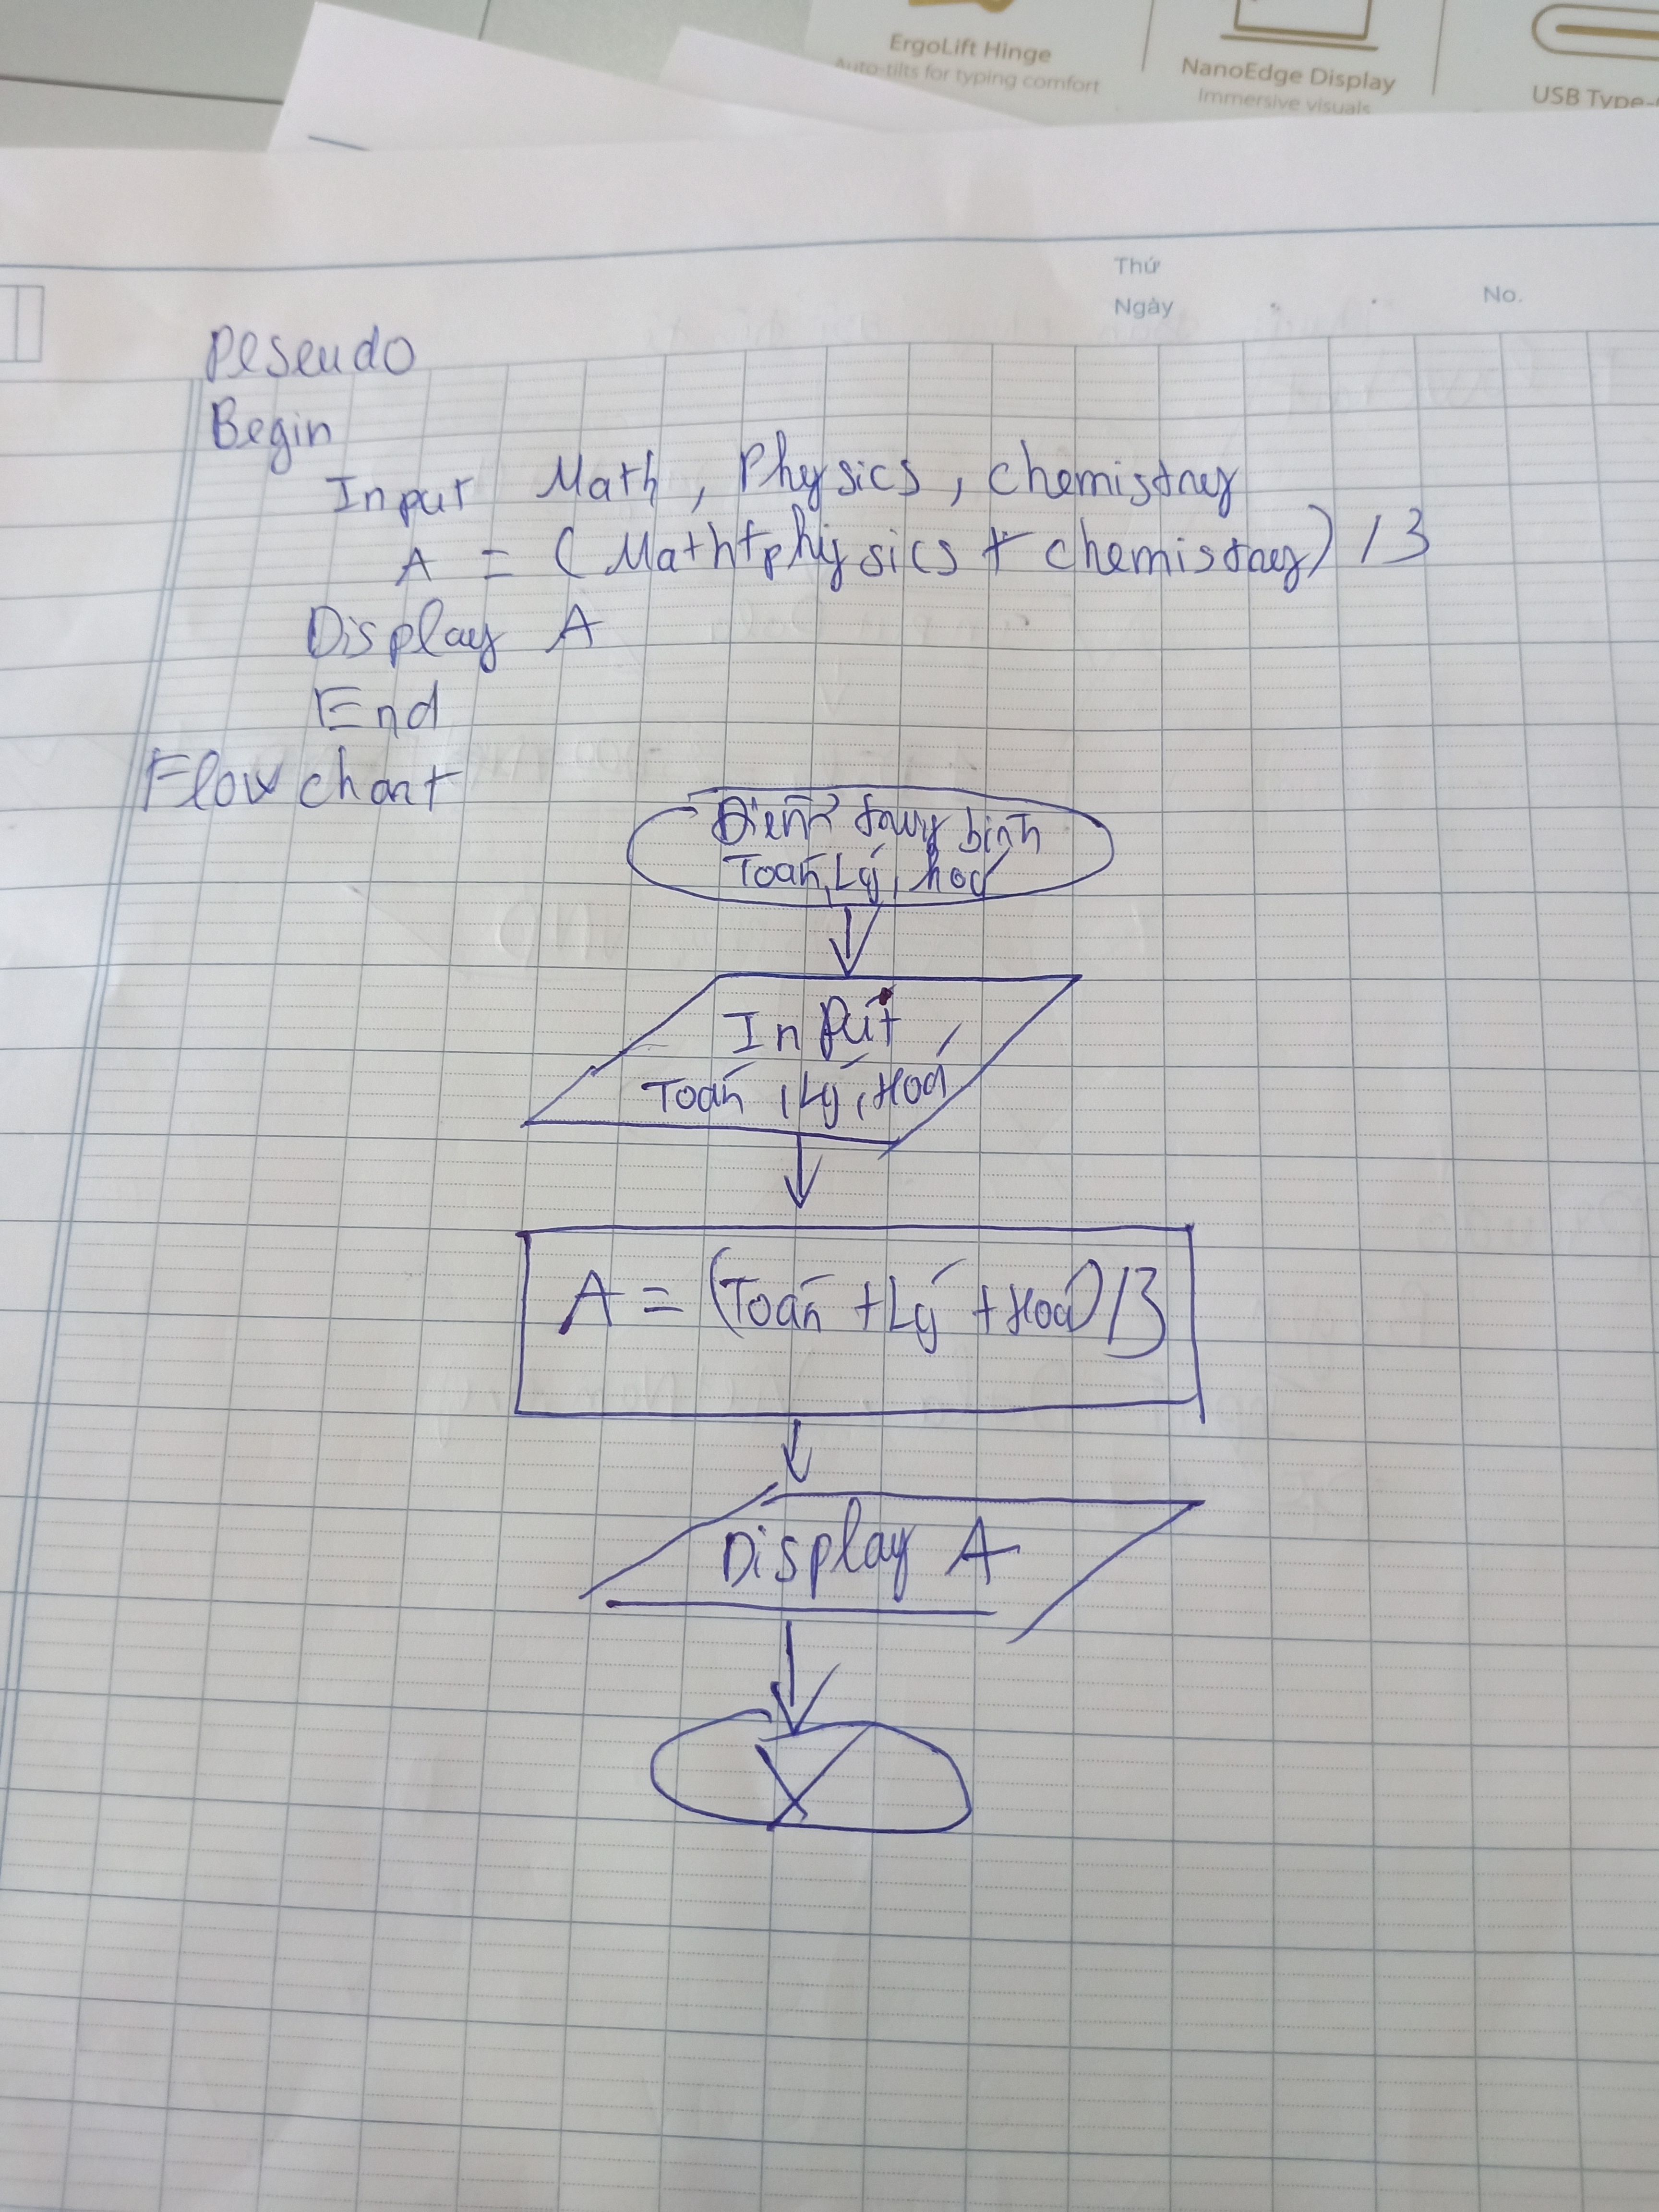 ErgoLift Hinge
Auto-tilts for typing comfort
NanoEdge Display
Immersive visuals
USB Type-
Thứ
Ngày
No.
Peseudo
Begin
Input Math, Physics, chemistry
A = (Math+physics + chemistry) / 3
Display A
End
Flow chart
Điểm trung bình
Toán, Lý, hoá
Input
Toán, Lý, Hoá
A = (Toán + Lý + Hoá) / 3
Display A